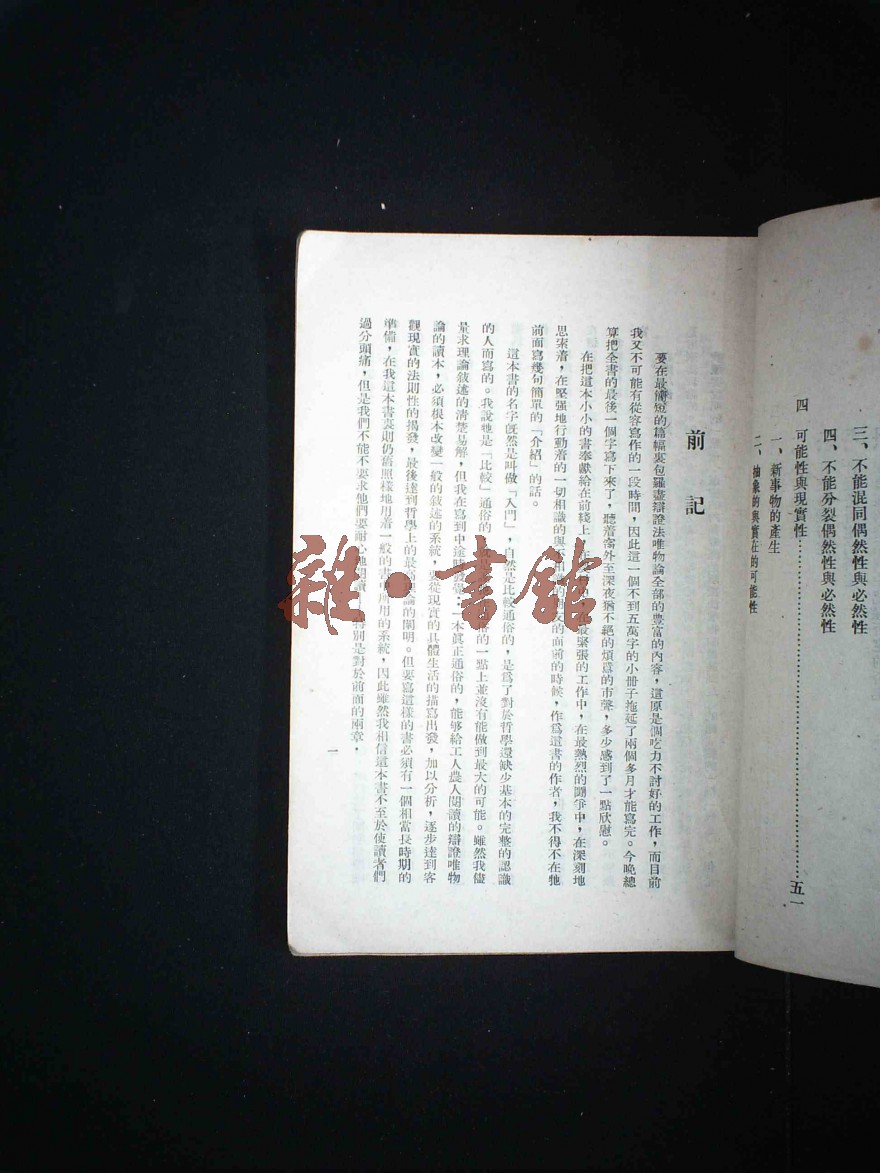 三、不能混同偶然性與必然性
四、不能分裂偶然性與必然性
四 可能性與現實性……………………………五一
一、新事物的產生
二、抽象的與實在的可能性
前記
要在最簡短的篇幅裏包羅盡辯證法唯物論全部的豐富的內容，這原是個吃力不討好的工作，而目前
我又不可能有從容寫作的一段時間，因此這一個不到五萬字的小冊子拖延了兩個多月才能寫完。今晚總
算把全書的最後一個字寫下來了，聽着窗外至深夜猶不絕的煩囂的市聲，多少感到了一點欣慰。
在把這本小小的書奉獻給在前綫上，在最緊張的工作中，在最熱烈的鬪爭中，在深刻地
思索着，在堅强地行動着的一切相識的與不相識的朋友的面前的時候，作爲這書的作者，我不得不在牠
前面寫幾句簡單的「介紹」的話。
這本書的名字旣然是叫做「入門」，自然是比較通俗的，是爲了對於哲學還缺少基本的完整的認識
的人而寫的。我說牠是「比較」通俗的，俗的一點上並沒有能做到最大的可能。雖然我儘
量求理論敍述的清楚易解，但我在寫到中途時發覺：一本眞正通俗的，能够給工人農人閱讀的辯證唯物
論的讀本，必須根本改變一般的敍述的系統，要從現實的具體生活的描寫出發，加以分析，逐步達到客
觀現實的法則性的揭發，最後達到哲學上的最高理論的闡明。但要寫這樣的書必須有一個相當長時期的
準備，在我這本書裏則仍舊照樣地用着一般的書中所用的系統，因此雖然我相信這本書不至於使讀者們
過分頭痛，但是我們不能不要求他們要耐心地閱讀，特別是對於前面的兩章，
一
雜·書館